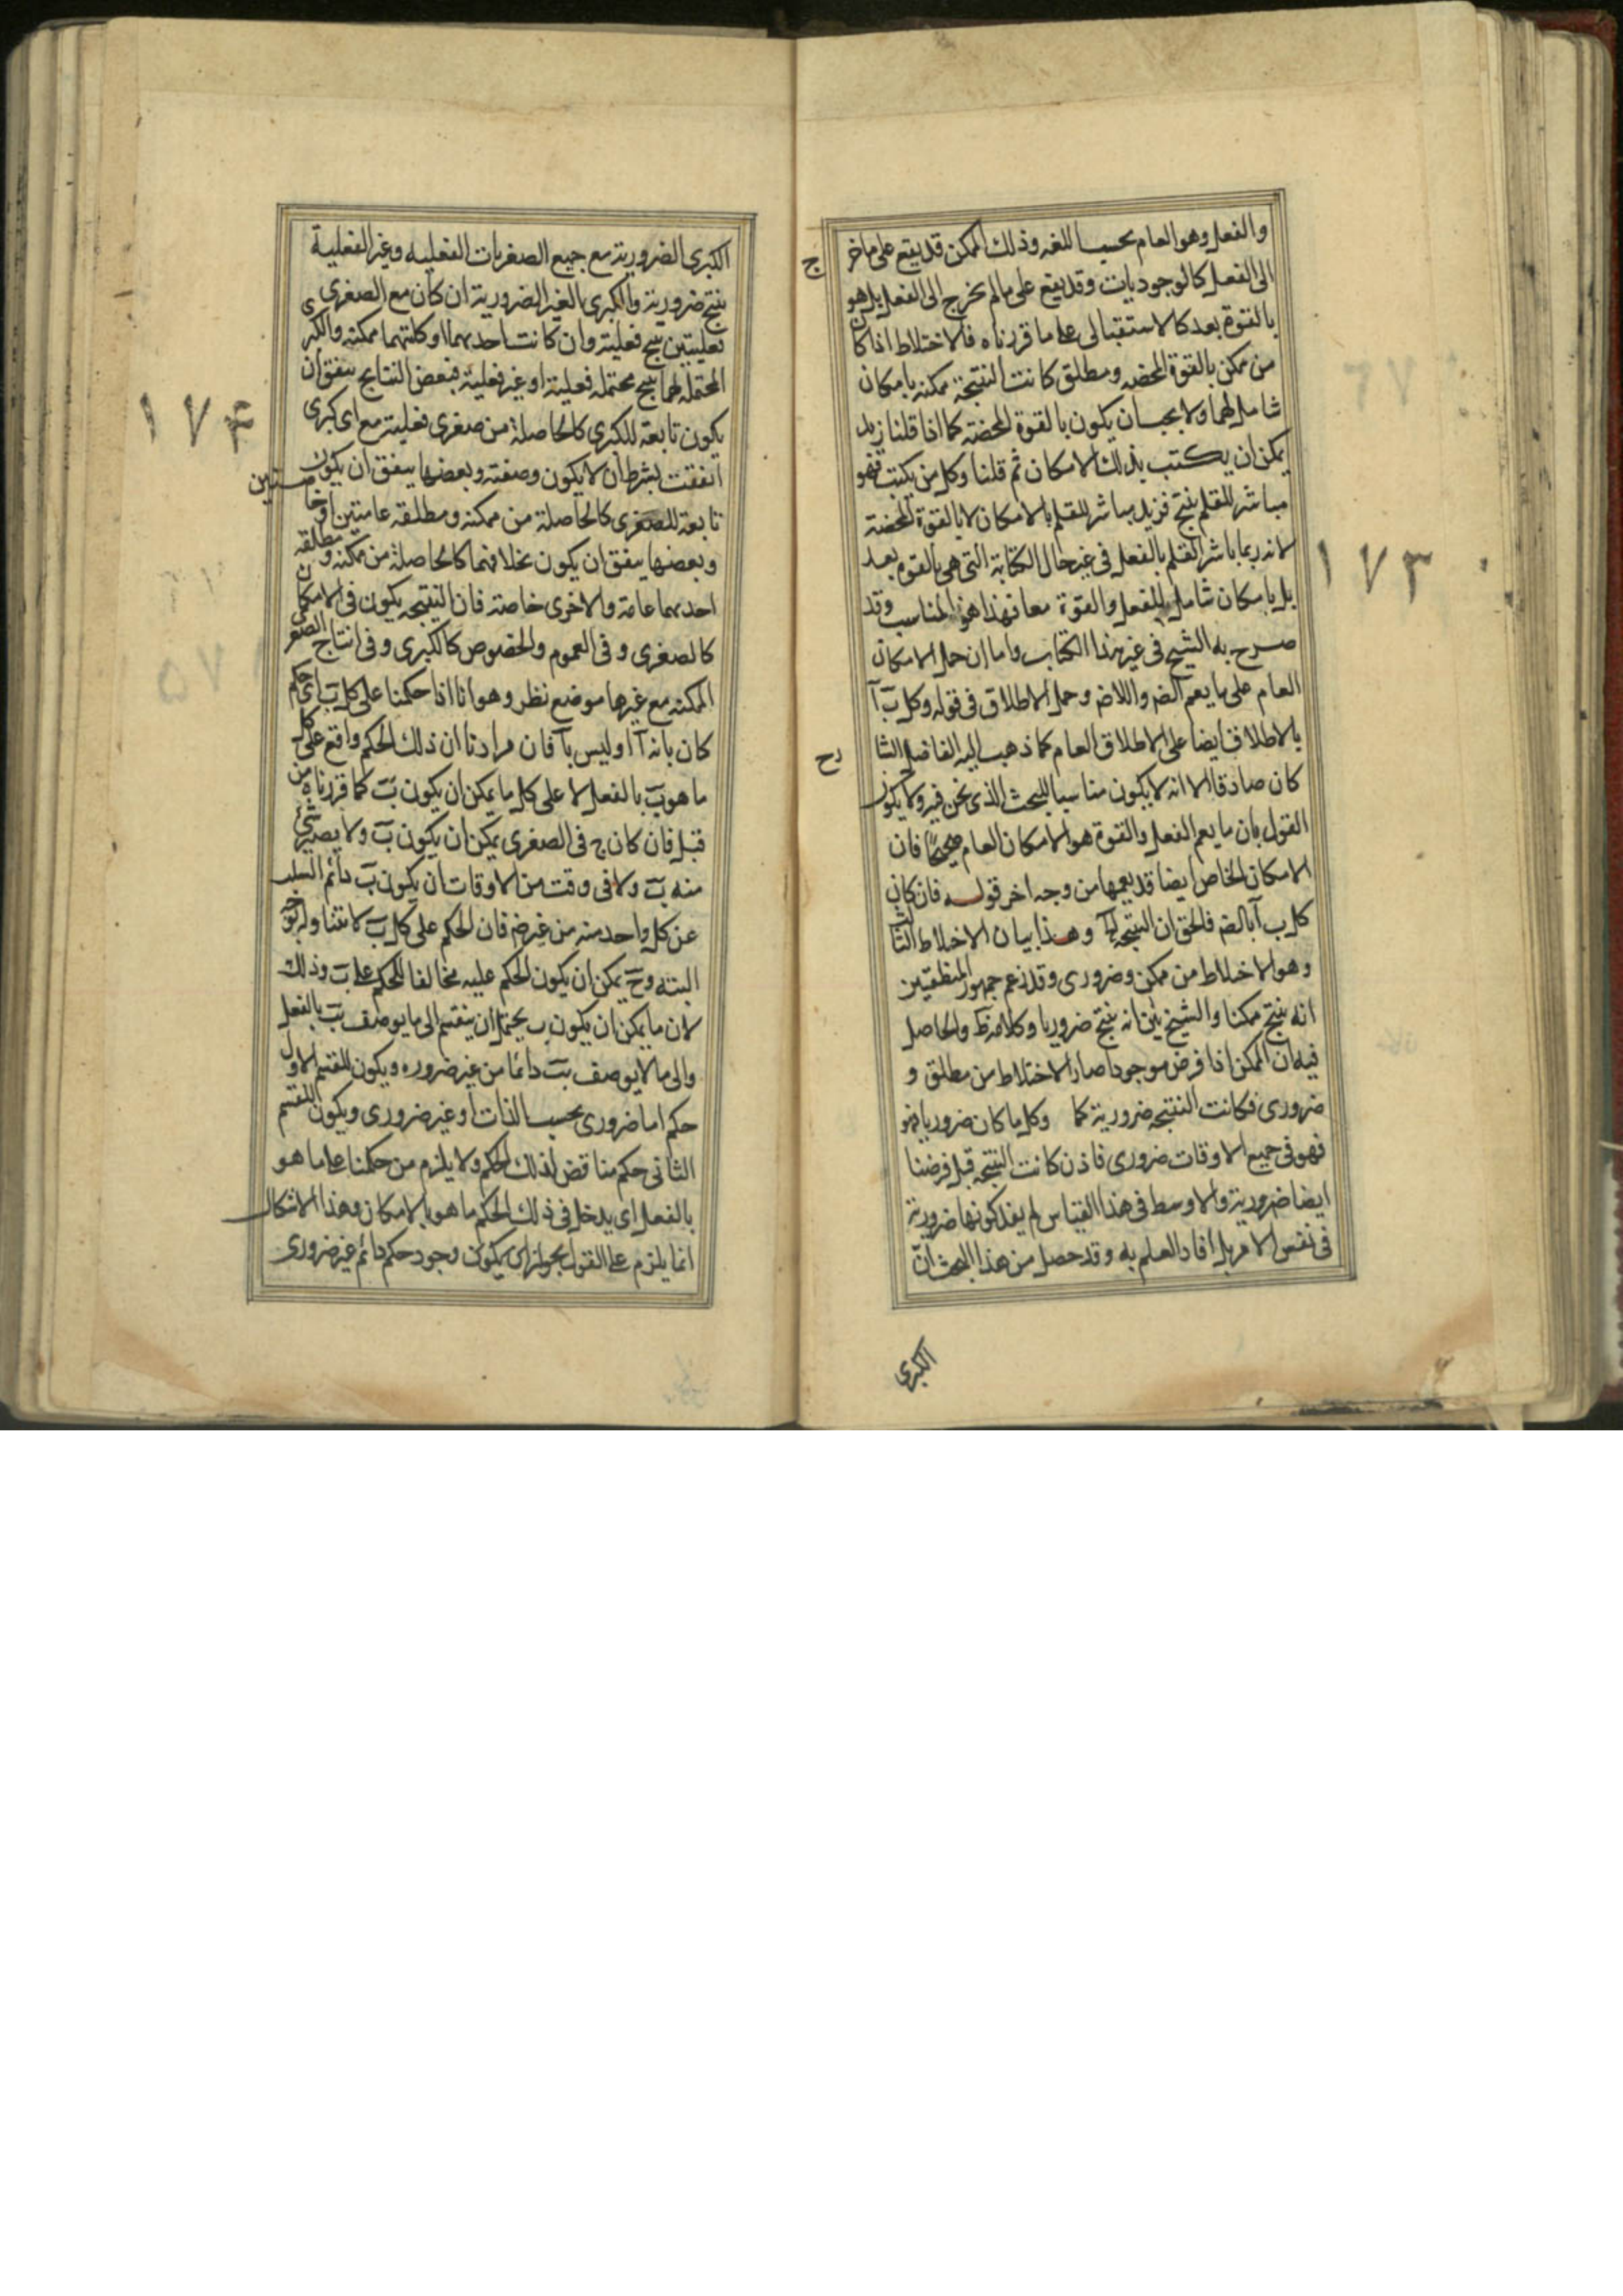 والفعل وهو العام بحسب اللغه وذلك الممكن قد يقع على ما خر
ج
الى الفعل كالوجوديات وقد يقع على مالم يخرج الى الفعل بل هو
بالقوة بعد كالاستقبالى على ما قررناه فالاختلاط اذا كان
من ممكن بالقوة المحضه ومطلق كانت النتيجة ممكنه بامكان
شامل لهما ولا يجب ان يكون بالقوة المحضته كما اذا قلنا زيد
يمكن ان يكتب بذلك الامكان ثم قلنا وكل من يكتب فهو
مباشر للقلم ينتج فزيد مباشر للقلم بالامكان لا بالقوة المحضته
لانه ربما باشر القلم بالفعل فى غير حال الكتابة التى هى بالقوه بعد
١٧٣
بل بامكان شامل للفعل والقوة معا فهذا هو المناسب وقد
صرح به الشيخ فى غير هذا الكتاب واما ان حمل الامكان
العام على ما يعم الضر واللاضر وحمل الاطلاق فى قوله وكل ب آ
بالاطلاق ايضا على الاطلاق العام كما ذهب اليه الفاضل الشا
رح
كان صادقا الا انه لا يكون مناسبا للبحث الذى نحن فيه ولا يكون
القول بان ما يعم الفعل والقوة هو الامكان العام صحيحا فان
الامكان الخاص ايضا قد يعمها من وجه اخر قوله فان كان
كل ب آ بالضر فالحق ان النتيجه وهذا بيان الاختلاط الثالث
وهو الاختلاط من ممكن وضرورى وقد زعم جمهور المنطقيين
انه ينتج ممكنا والشيخ بين انه ينتج ضروريا وكلامه ظ والحاصل
فيه ان الممكن اذا فرض موجودا صار الاختلاط من مطلق و
ضرورى فكانت النتيجه ضرورية كما وكل ما كان ضروريا فهو
فهو فى جميع الاوقات ضرورى فاذن كانت النتيجه قبل فرضنا
ايضا ضرورية والاوسط فى هذا القياس لم يفد كونها ضرورية
فى نفس الامر بل افاد العلم به وقد حصل من هذا البحث ان
الكبرى
الكبرى الضرورية مع جميع الصغريات الفعليه وغير الفعلية
ينتج ضرورية والكبرى الغير الضرورية ان كان مع الصغرى
فعليتين ينتج فعلية وان كانت احديهما او كلتيهما ممكنه والكبرى
المحتمله لهما ينتج محتمله فعلية او غير فعلية فبعض النتايج يتفق ان
يكون تابعة للكبرى كالحاصلة من صغرى فعلية مع اى كبرى
١٧٤
اتفقت بشرط ان لا يكون وصفته وبعضها يتفق ان يكون
تابعة للصغرى كالحاصلة من ممكنه ومطلقه عامتين او خاصتين
وبعضها يتفق ان يكون بخلافهما كالحاصلة من ممكنه ومطلقه
احديهما عامة والاخرى خاصته فان النتيجه يكون فى الامكان
كالصغرى وفى العموم والخصوص كالكبرى وفى انتاج الصغرى
الممكنه مع غيرها موضع نظر وهو انا اذا حكمنا على كل ب اى حكم
كان بانه آ او ليس بآ فان مرادنا ان ذلك الحكم واقع على كل
ما هو ب بالفعل لا على كل ما يمكن ان يكون ب كما قررناه من
قبل فان كان ج فى الصغرى يمكن ان يكون ب ولا يصير شئ
منه ب ولا فى وقت من الاوقات ان يكون ب دائم السلب
عن كل واحد منه من غير ضر فان الحكم على كل ب لا يتناوله بوجه
البته وح يمكن ان يكون الحكم عليه مخالفا للحكم على ب وذلك
لان ما يمكن ان يكون ب يحتمل ان ينقسم الى ما يوصف بب بالفعل
والى ما لا يوصف بب دائما من غير ضروره ويكون للقسم الاول
حكم اما ضرورى بحسب الذات او غير ضرورى ويكون للقسم
الثانى حكم مناقض لذلك الحكم ولا يلزم من حكمنا على ما هو
بالفعل اى يدخل فى ذلك الحكم ما هو بالامكان وهذا الاشكال
انما يلزم على القول بجواز ان يكون وجود حكم دائم غير ضرورى